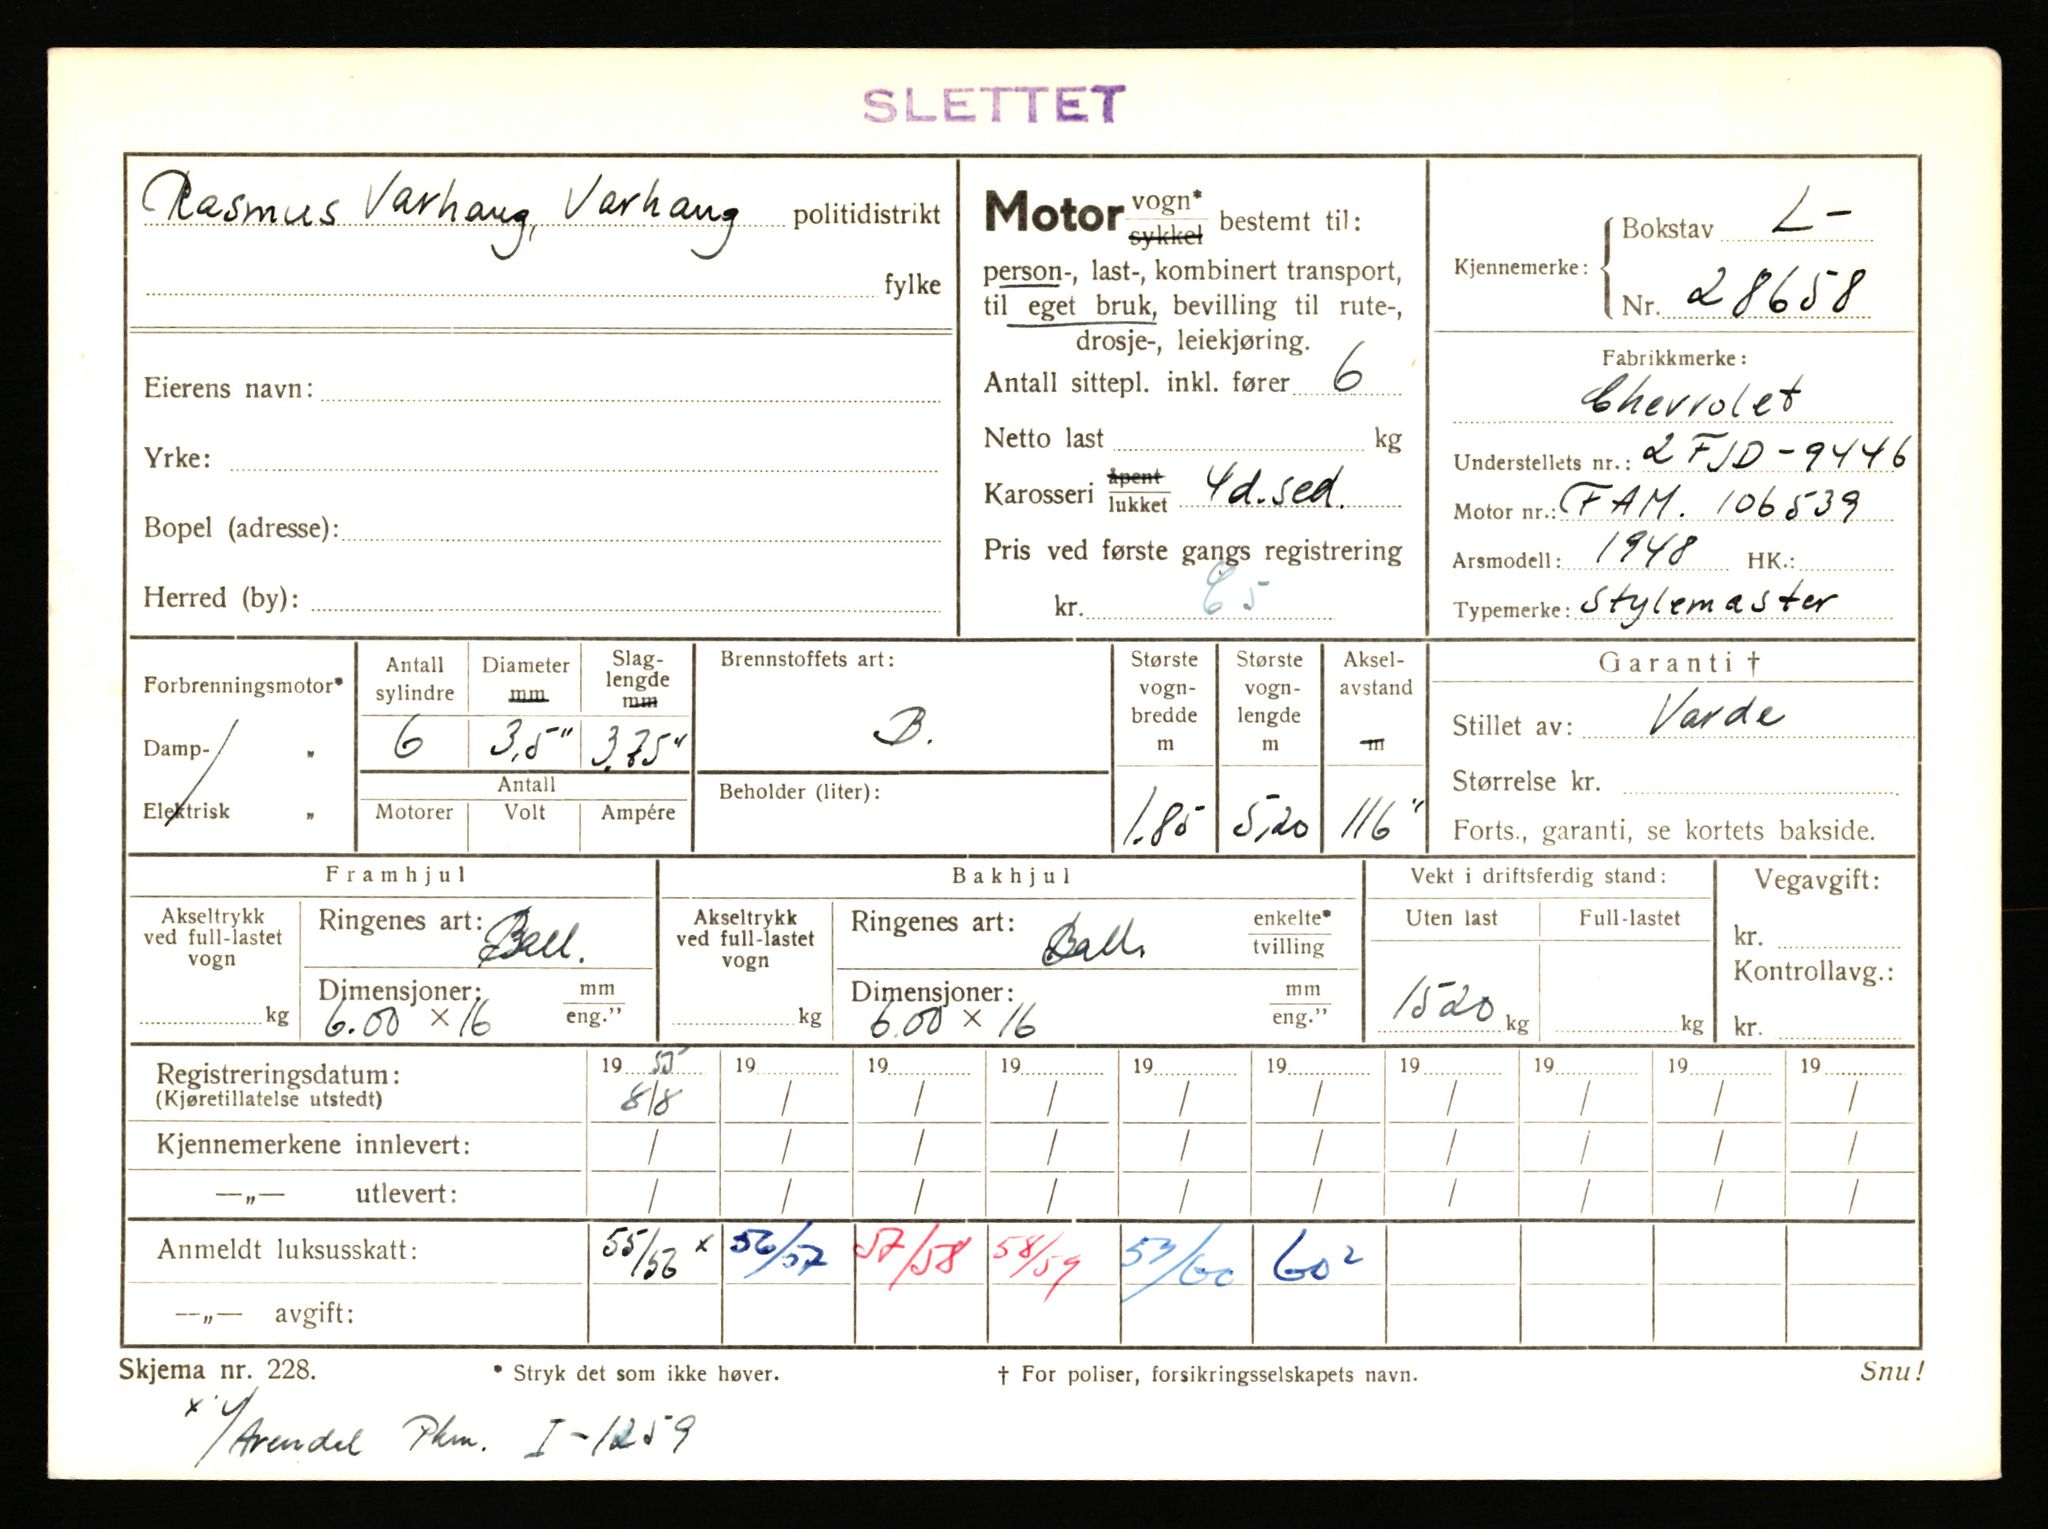 SLETTET
Rasmus Varhaug, Varhaug politidistrikt
fylke
Eierens navn:
Yrke:
Bopel (adresse):
Herred (by):
Motor vogn* sykkel bestemt til:
person-, last-, kombinert transport,
til eget bruk, bevilling til rute-,
drosje-, leiekjøring.
Antall sittepl. inkl. fører 6
Netto last kg
Karosseri åpent lukket 4d. sed.
Pris ved første gangs registrering
kr. E 5
Kjennemerke: Bokstav L-
Nr. 28658
Fabrikkmerke:
Chevrolet
Understellets nr.: 2 FJD-9446
Motor nr.: FAM. 106539
Arsmodell: 1948 HK.:
Typemerke: Stylemaster
Forbrenningsmotor*
Damp- „
Elektrisk „
Antall sylindre 6
Diameter mm 3,5"
Slag-lengde mm 3,75"
Antall
Motorer Volt Ampére
Brennstoffets art:
B.
Beholder (liter):
Største vogn-bredde m 1.85
Største vogn-lengde m 5,20
Aksel-avstand m 116"
Garanti †
Stillet av: Varde
Størrelse kr.
Forts., garanti, se kortets bakside.
Framhjul
Akseltrykk ved full-lastet vogn
kg
Ringenes art: Ball.
Dimensjoner: mm eng.”
6.00 × 16
Bakhjul
Akseltrykk ved full-lastet vogn
kg
Ringenes art: Ball. enkelte* tvilling
Dimensjoner: mm eng.”
6.00 × 16
Vekt i driftsferdig stand:
Uten last Full-lastet
1520 kg kg
Vegavgift:
kr.
Kontrollavg.:
kr.
Registreringsdatum: 19 55 19 19 19 19 19 19 19 19 19
(Kjøretillatelse utstedt) 8/8 / / / / / / / / /
Kjennemerkene innlevert: / / / / / / / / / /
—„— utlevert: / / / / / / / / / /
Anmeldt luksusskatt: 55/56 x 56/57 57/58 58/59 59/60 60²
—„— avgift:
Skjema nr. 228. * Stryk det som ikke høver. † For poliser, forsikringsselskapets navn. Snu!
x Arendel Pkm. I-1259